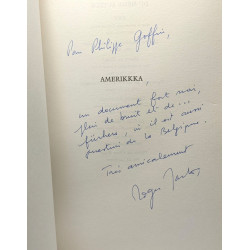 Pour Philippe Goffin,
AMERIKKKA
un document fort noir,
plein de bruit et de...
où il est aussi
question de la Belgique.
Très amicalement
Roger